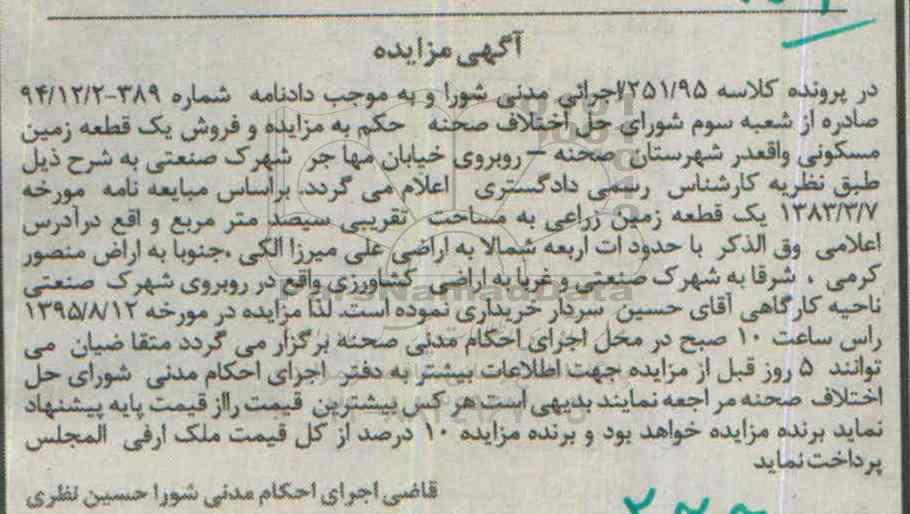 آگهی مزایده
در پرونده کلاسه ۲۵۱/۹۵/اجرائی مدنی شورا و به موجب دادنامه شماره ۳۸۹-۹۴/۱۲/۲
صادره از شعبه سوم شورای حل اختلاف صحنه حکم به مزایده و فروش یک قطعه زمین
مسکونی واقعدر شهرستان صحنه – روبروی خیابان مهاجر شهرک صنعتی به شرح ذیل
طبق نظریه کارشناس رسمی دادگستری اعلام می گردد. براساس مبایعه نامه مورخه
۱۳۸۳/۳/۷ یک قطعه زمین زراعی به مساحت تقریبی سیصد متر مربع و اقع درآدرس
اعلامی وق الذکر با حدود ات اربعه شمالا به اراضی علی میرزا الکی ،جنوبا به اراض منصور
کرمی ، شرقا به شهرک صنعتی و غربا به اراضی کشاورزی واقع در روبروی شهرک صنعتی
ناحیه کارگاهی آقای حسین سردار خریداری نموده است. لذا مزایده در مورخه ۱۳۹۵/۸/۱۲
راس ساعت ۱۰ صبح در محل اجرای احکام مدنی صحنه برگزار می گردد متقا ضیان می
توانند ۵ روز قبل از مزایده جهت اطلاعات بیشتر به دفتر اجرای احکام مدنی شورای حل
اختلاف صحنه مر اجعه نمایند بدیهی است هر کس بیشترین قیمت رااز قیمت پایه پیشنهاد
نماید برنده مزایده خواهد بود و برنده مزایده ۱۰ درصد از کل قیمت ملک ارفی المجلس
پرداخت نماید
قاضی اجرای احکام مدنی شورا حسین نظری